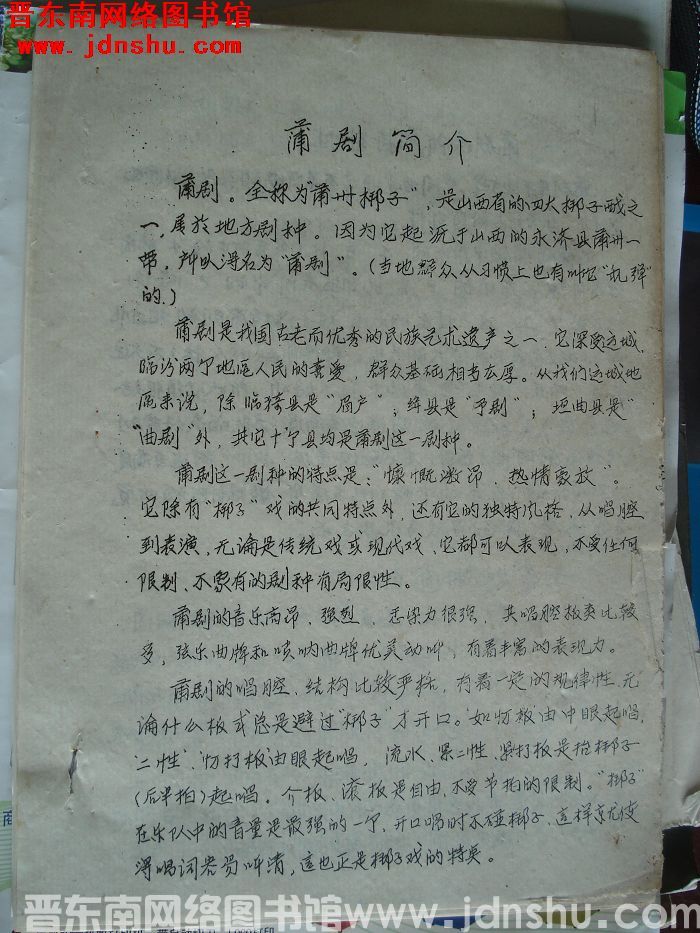 晋东南网络图书馆
www.jdnshu.com
蒲剧简介
蒲剧。全称为"蒲州梆子"，是山西省的四大梆子戏之
一，属於地方剧种。因为它起源于山西的永济县蒲州一
带，所以得名为"蒲剧"。(当地群众从习惯上也有叫它"乱弹"
的.)
蒲剧是我国古老而优秀的民族艺术遗产之一，它深受运城、
临汾两个地区人民的喜爱，群众基础相当広厚。从我们运城地
区来说，除临猗县是"眉户"；绛县是"予剧"；垣曲县是"
"曲剧"外，其它十个县均是蒲剧这一剧种。
蒲剧这一剧种的特点是："慷慨激昂、热情豪放"。
它除有"梆子"戏的共同特点外，还有它的独特风格，从唱腔
到表演，无论是传统戏或现代戏，它都可以表现，不受任何
限制、不象有的剧种有局限性。
蒲剧的音乐高昂、强烈，感染力很强，其唱腔板类比较
多，弦乐曲牌和唢呐曲牌优美动听，有着丰富的表现力。
蒲剧的唱腔，结构比较严格，有着一定的规律性，无
论什么板式总是避过"梆子"才开口。如"慢板"由中眼起唱，
"二性"、"打板"由眼起唱，流水、紧二性、紧打板是抬梆子
(后半拍)起唱。介板、滚板是自由，不受节拍的限制。"梆子"
在乐队中的音量是最强的一个，开口唱时不碰梆子，这样就能使
得唱词容易听清，这也正是梆子戏的特点。
晋东南网络图书馆www.jdnshu.com